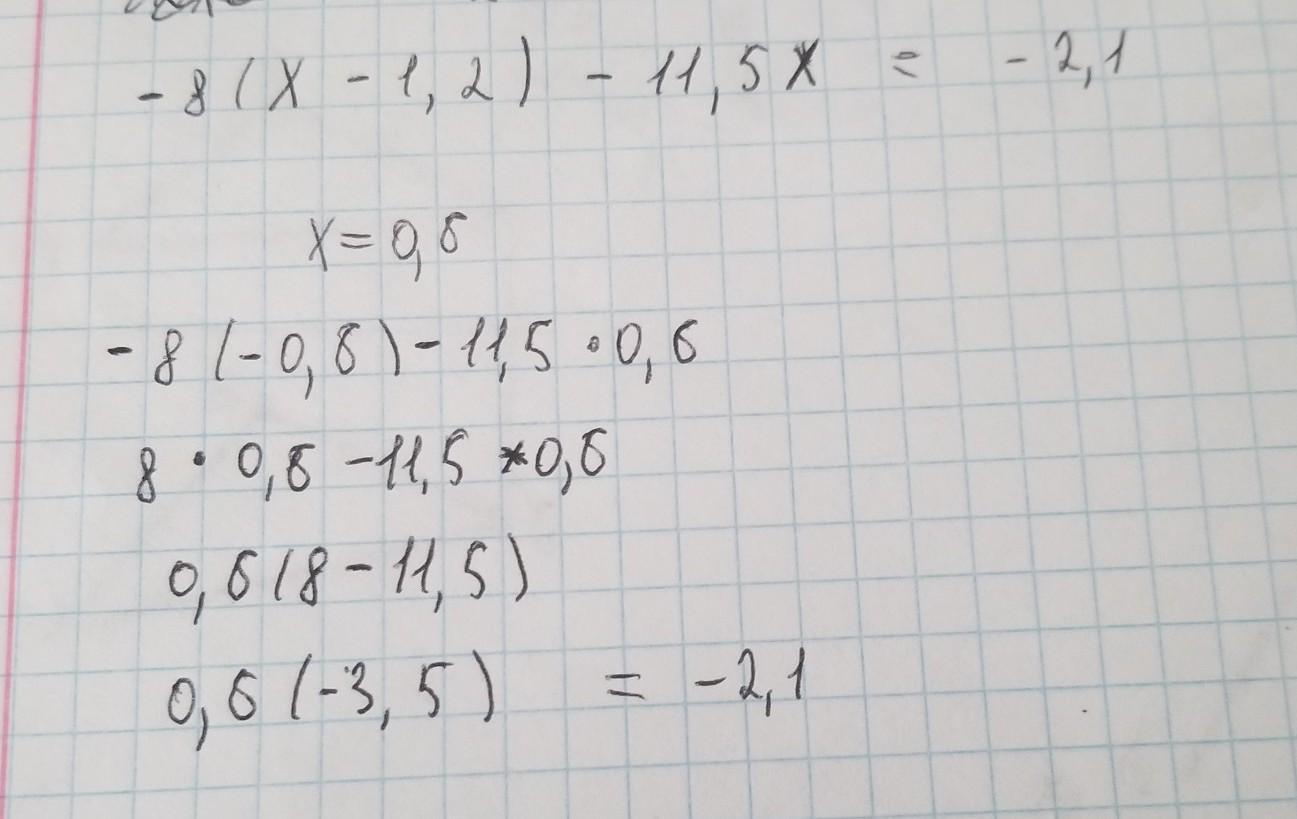 -8(x - 1,2) - 11,5x = -2,1
x = 0,6
-8(-0,6) - 11,5 · 0,6
8 · 0,6 - 11,5 * 0,6
0,6(8 - 11,5)
0,6(-3,5) = -2,1